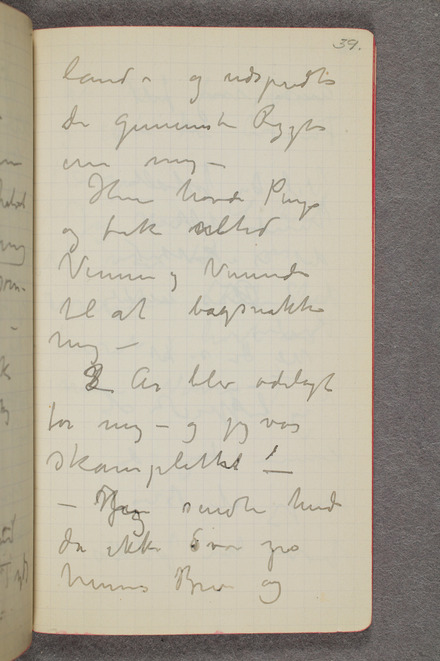 39.
land – og udspredte
de gemeneste Rygter
om mig –
Hun havde Penge
og fik altid
Venner og Veninde
til at bagsnakke
mig –
3 Aar blev ødelagt
for mig – og jeg var
skamplettet !
– Jeg sendte hende
da ikke Svar paa
hennes Brev og